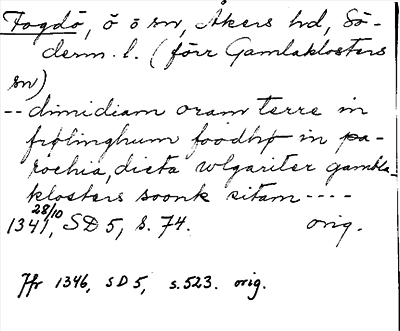 Fogdö, ö o sn, Åkers hd, Sö-
derm. l. (förr Gamlaklosters
sn)
-- dimidiam oram terre in
frølinghum foodhø in pa-
rochia, dicta wlgariter gambla-
klosters soonk sitam ----
28/10
1341, SD 5, s. 74. orig.
Jfr 1346, SD 5, s. 523. orig.